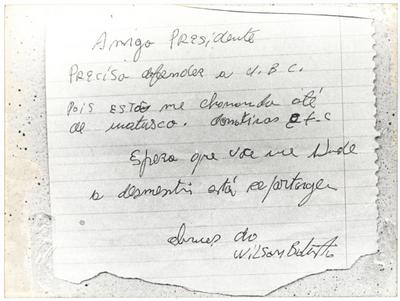 Amigo PResidente
PReciso defender a U.B.C.
pois estão me chamando até
de matusco. etc
Espero que voce me
a desmentir está reportagem
do
Wilson Batista